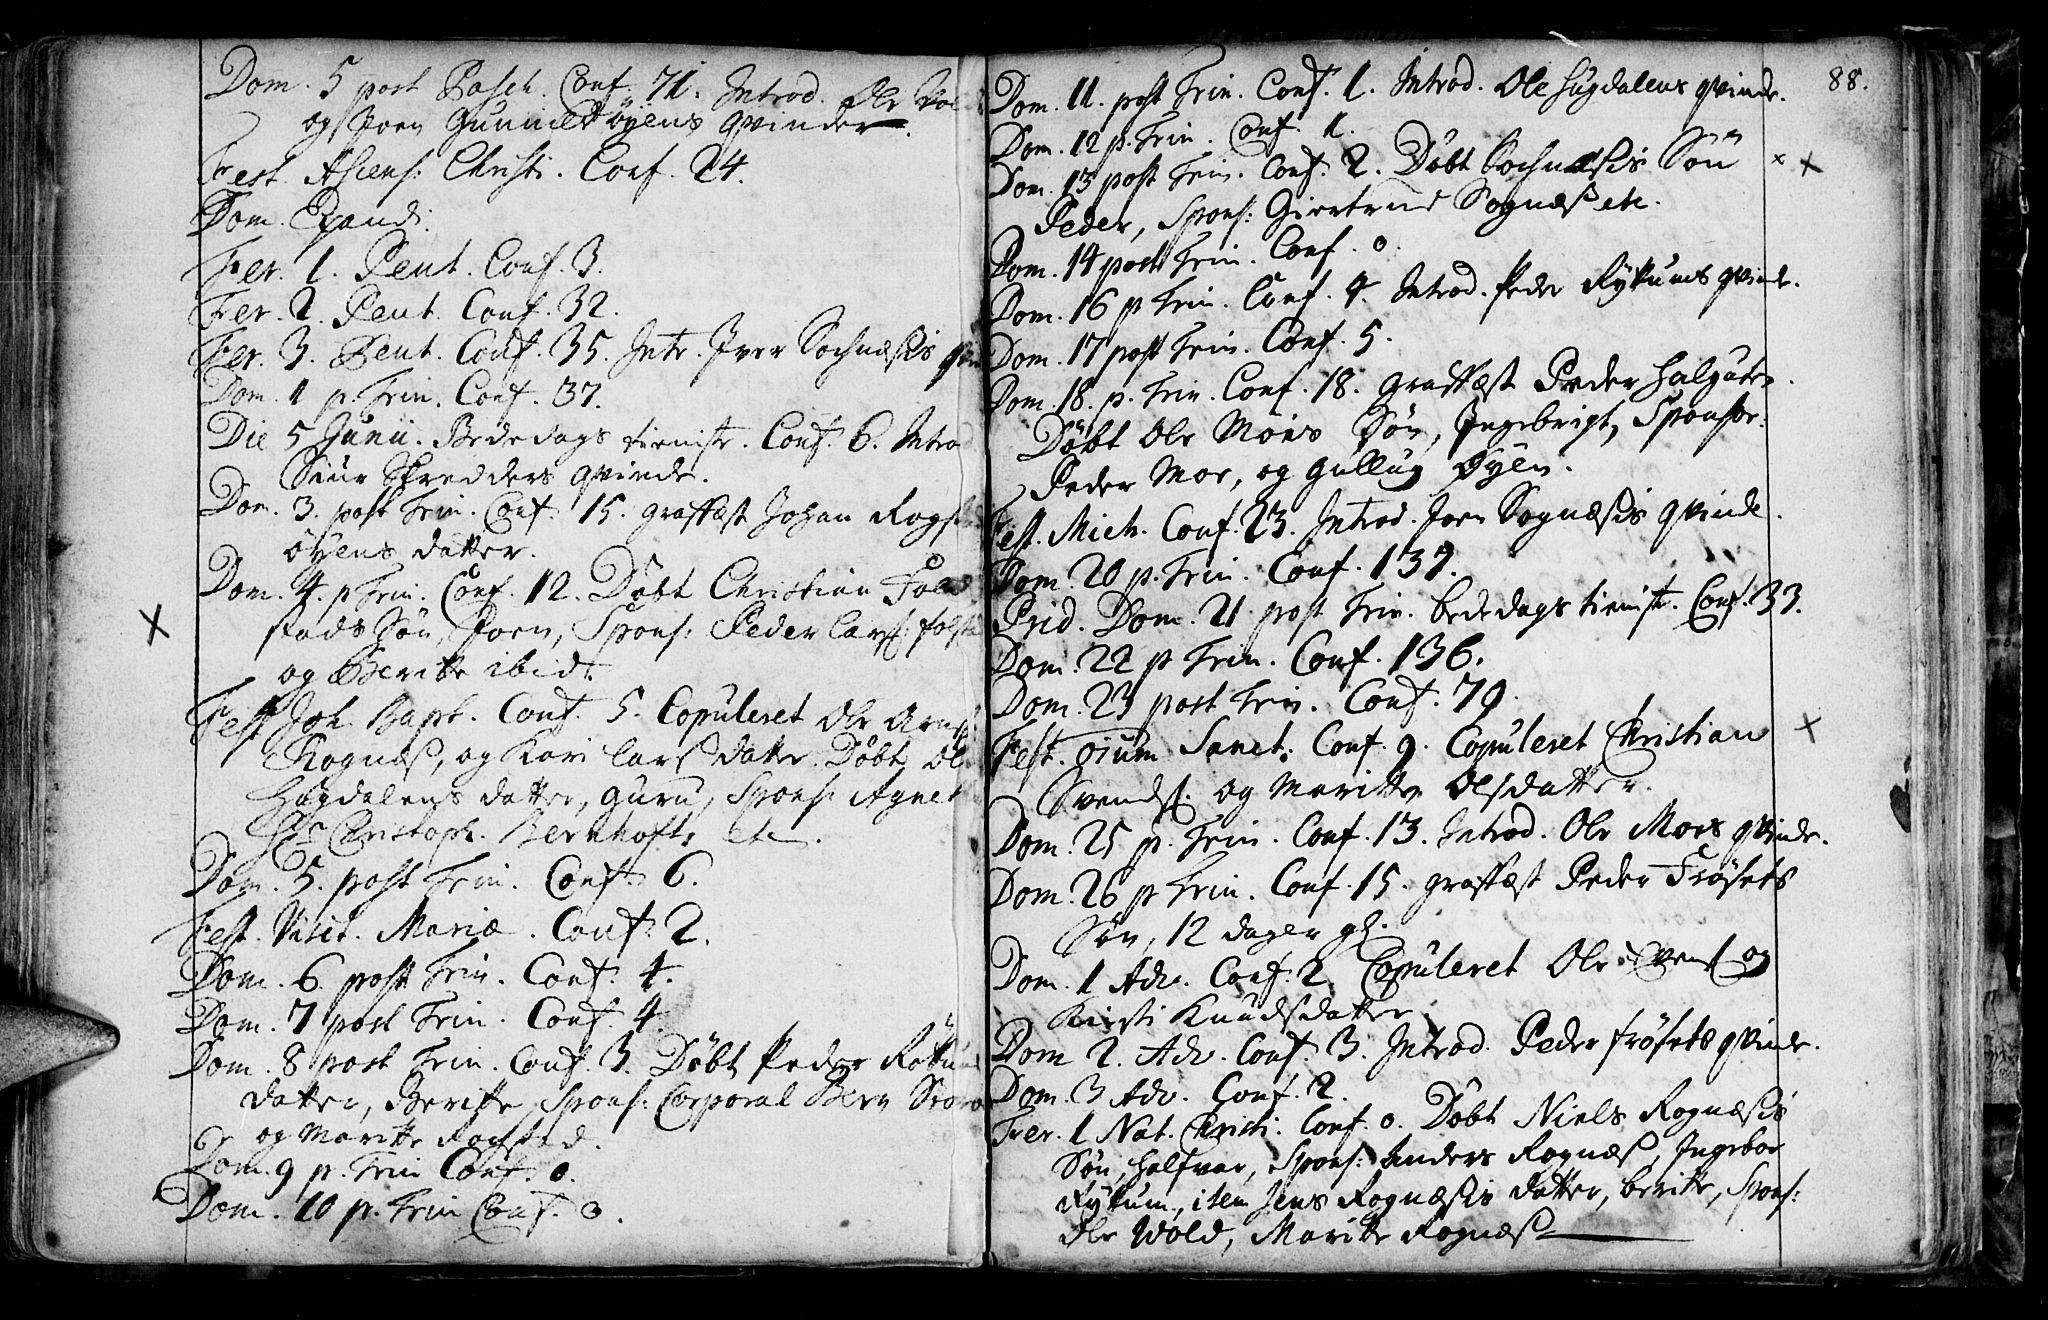 Dom. 5 post Pasch. Conf. 71. Introd. Ole
og Joen Gunnildöyens qvinder.
Fest. Ascens: Christi. Conf. 24.
Dom. Exaudi:
Fer. 1. Pent. Conf. 3.
Fer. 2. Pent. Conf. 32.
Fer. 3. Pent. Conf. 35. Intr. Iver Sochnæsis
Dom. 1 p. Trin. Conf. 37.
Die 5 Junii. Bededags tieniste. Conf. 6. Introd
Siur Skredders qvinde.
Dom. 3. post Trin. Conf. 15. graffæst Johan
öyens datter.
Dom. 4. p Trin. Conf. 12. Döbt Christian
stads Sön, Joen, Spons: Peder Larss:
og Beritte ibid.
Fest Joh. Bapt. Conf. 5. Copuleret Ole
Rognæss, og Kari Lars datter. Döbt
Hugdalens datter, guru, Spons: Agnet
Hr Christoph. Bernhofts etc.
Dom. 5. post Trin. Conf. 6.
Fest. Visit. Mariæ. Conf. 2.
Dom. 6 post Trin. Conf. 4.
Dom. 7 post Trin. Conf. 4.
Dom. 8 post Trin. Conf. 3. Döbt Peder
datter, Beritte, Spons: Corporal Bern
og Maritte Rogstad.
Dom. 9 p. Trin Conf. 0.
Dom. 10 p. Trin Conf. 0.
88.
Dom. 11. post Trin. Conf. 1. Introd. Ole Hugdalens qvinde.
Dom. 12 p. Trin. Conf. 1.
Dom. 13 post Trin. Conf. 2. Döbt Sochnæsis Sön
Peder, Spons: Giertrud Sognæss etc.
Dom. 14 post Trin. Conf. 0.
Dom. 16 p Trin. Conf. 4. Introd. Peder Rykums qvinde.
Dom. 17 post Trin. Conf. 5.
Dom. 18. p. Trin. Conf. 18. graffæst Peder
Döbt Ole Moes Sön, Ingebrigt, Sponsor:
Peder Moe, og Gullug Öyen.
Fest. Mich. Conf. 23. Introd. Joen Sognæsis qvinde.
Dom. 20 p. Trin. Conf. 137.
Prid. Dom. 21 post Trin. bededags tieniste. Conf. 33.
Dom. 22 p Trin. Conf. 136.
Dom. 23 post Trin. Conf. 79.
Fest. oium Sanct: Conf. 9. Copuleret Christian
Svends: og Maritte Olsdatter.
Dom. 25 p. Trin. Conf. 13. Introd. Ole Moes qvinde.
Dom. 26 p Trin. Conf. 15. graffæst Peder Frösets
Sön, 12 dager gl.
Dom. 1 Adv. Conf. 2. Copuleret Ole og
Kirsti Knudsdatter.
Dom 2. Adv. Conf. 3. Introd. Peder frösets qvinde.
Dom. 3 Adv. Conf. 2.
Fer. 1 Nat. Christi. Conf. 0. Döbt Niels Rognæsis
Sön, Halfvar, Spons: Anders Rognæss, Ingebor
Rykum, item Jens Rognæsis datter, beritte, Spons:
Ole Wold, Maritte Rognæss